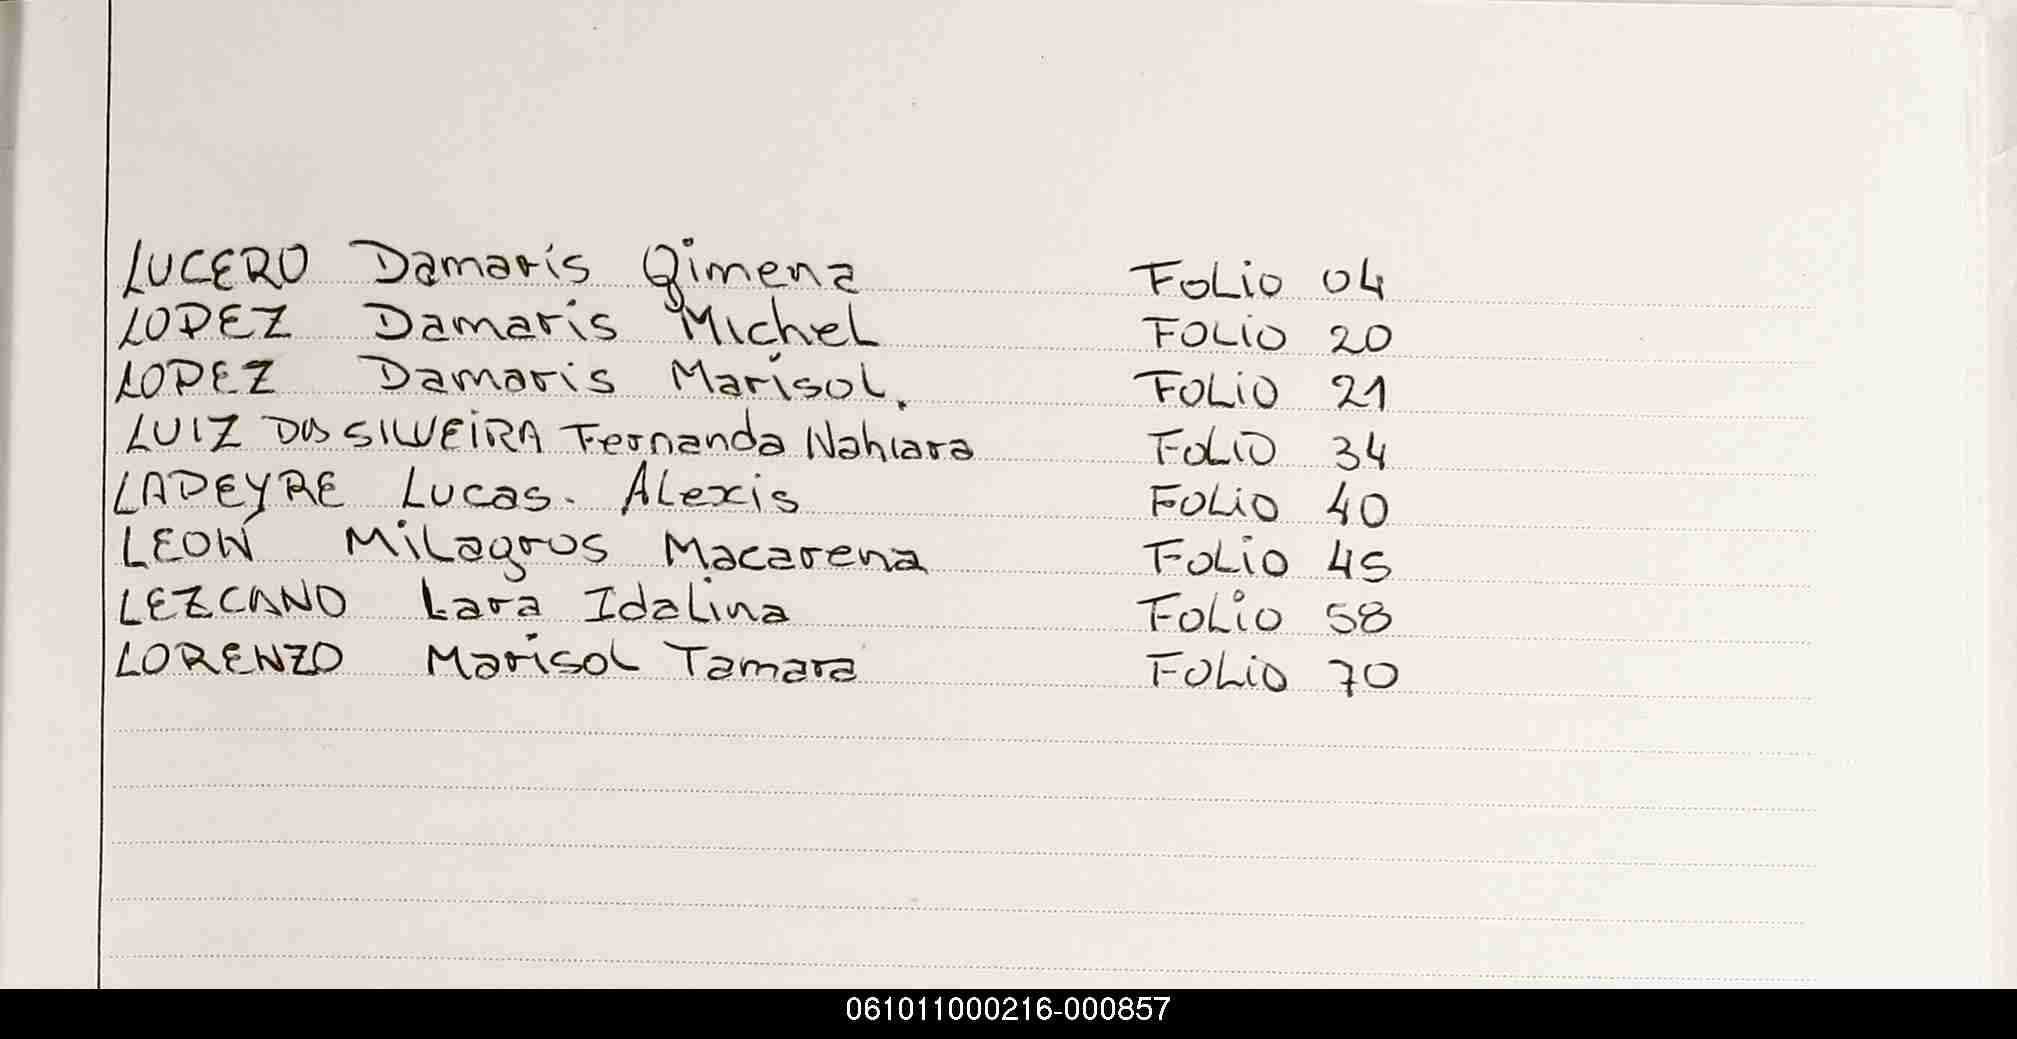 LUCERO Damaris Gimena FOLIO 04
LOPEZ Damaris Michel FOLIO 20
LOPEZ Damaris Marisol. FOLIO 21
LUIZ DA SILVEIRA Fernanda Nahiara FOLIO 34
LAPEYRE Lucas. Alexis FOLIO 40
LEON Milagros Macarena FOLIO 45
LEZCANO Lara Idalina FOLIO 58
LORENZO Marisol Tamara FOLIO 70
061011000216-000857